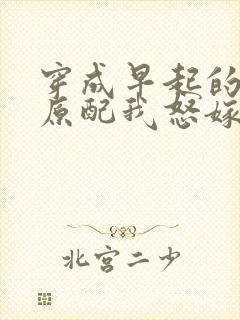 穿成早起的
原配我怒嫁
北宫二少